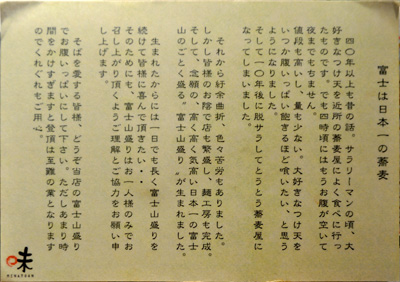 富士は日本一の蕎麦
四〇年以上も昔の話。サラリーマンの頃、大
好きなつけ天を近所の蕎麦屋によく食べに行っ
たものです。でも四時頃にはもうお腹が空いて
夜までもちません。
値段も高いし、量も少ない。大好きなつけ天を
いつか腹いっぱい飽きるほど喰いたい、と思う
ようになりました。
そして一〇年後に脱サラしてとうとう蕎麦屋に
なってしまいました。
それから紆余曲折、色々苦労もありました。
しかし皆様のお陰で店も繁盛し、麺工房も完成。
そして、念願の、高く高く気高い日本一の富士
山のごとく盛る“富士山盛り”が生まれました。
生まれたからには一日でも長く富士山盛りを
続けて皆様に喜んで頂きたい・・・
そのためにも、富士山盛りはお一人様のみでお
召し上がり頂くようご理解とご協力をお願い申
し上げます。
そばを愛する皆様、どうぞ当店の富士山盛り
でお腹いっぱいにして下さい。ただしあまり時
間をかけすぎますと登頂は至難の業となります
のでくれぐれもご用心
味